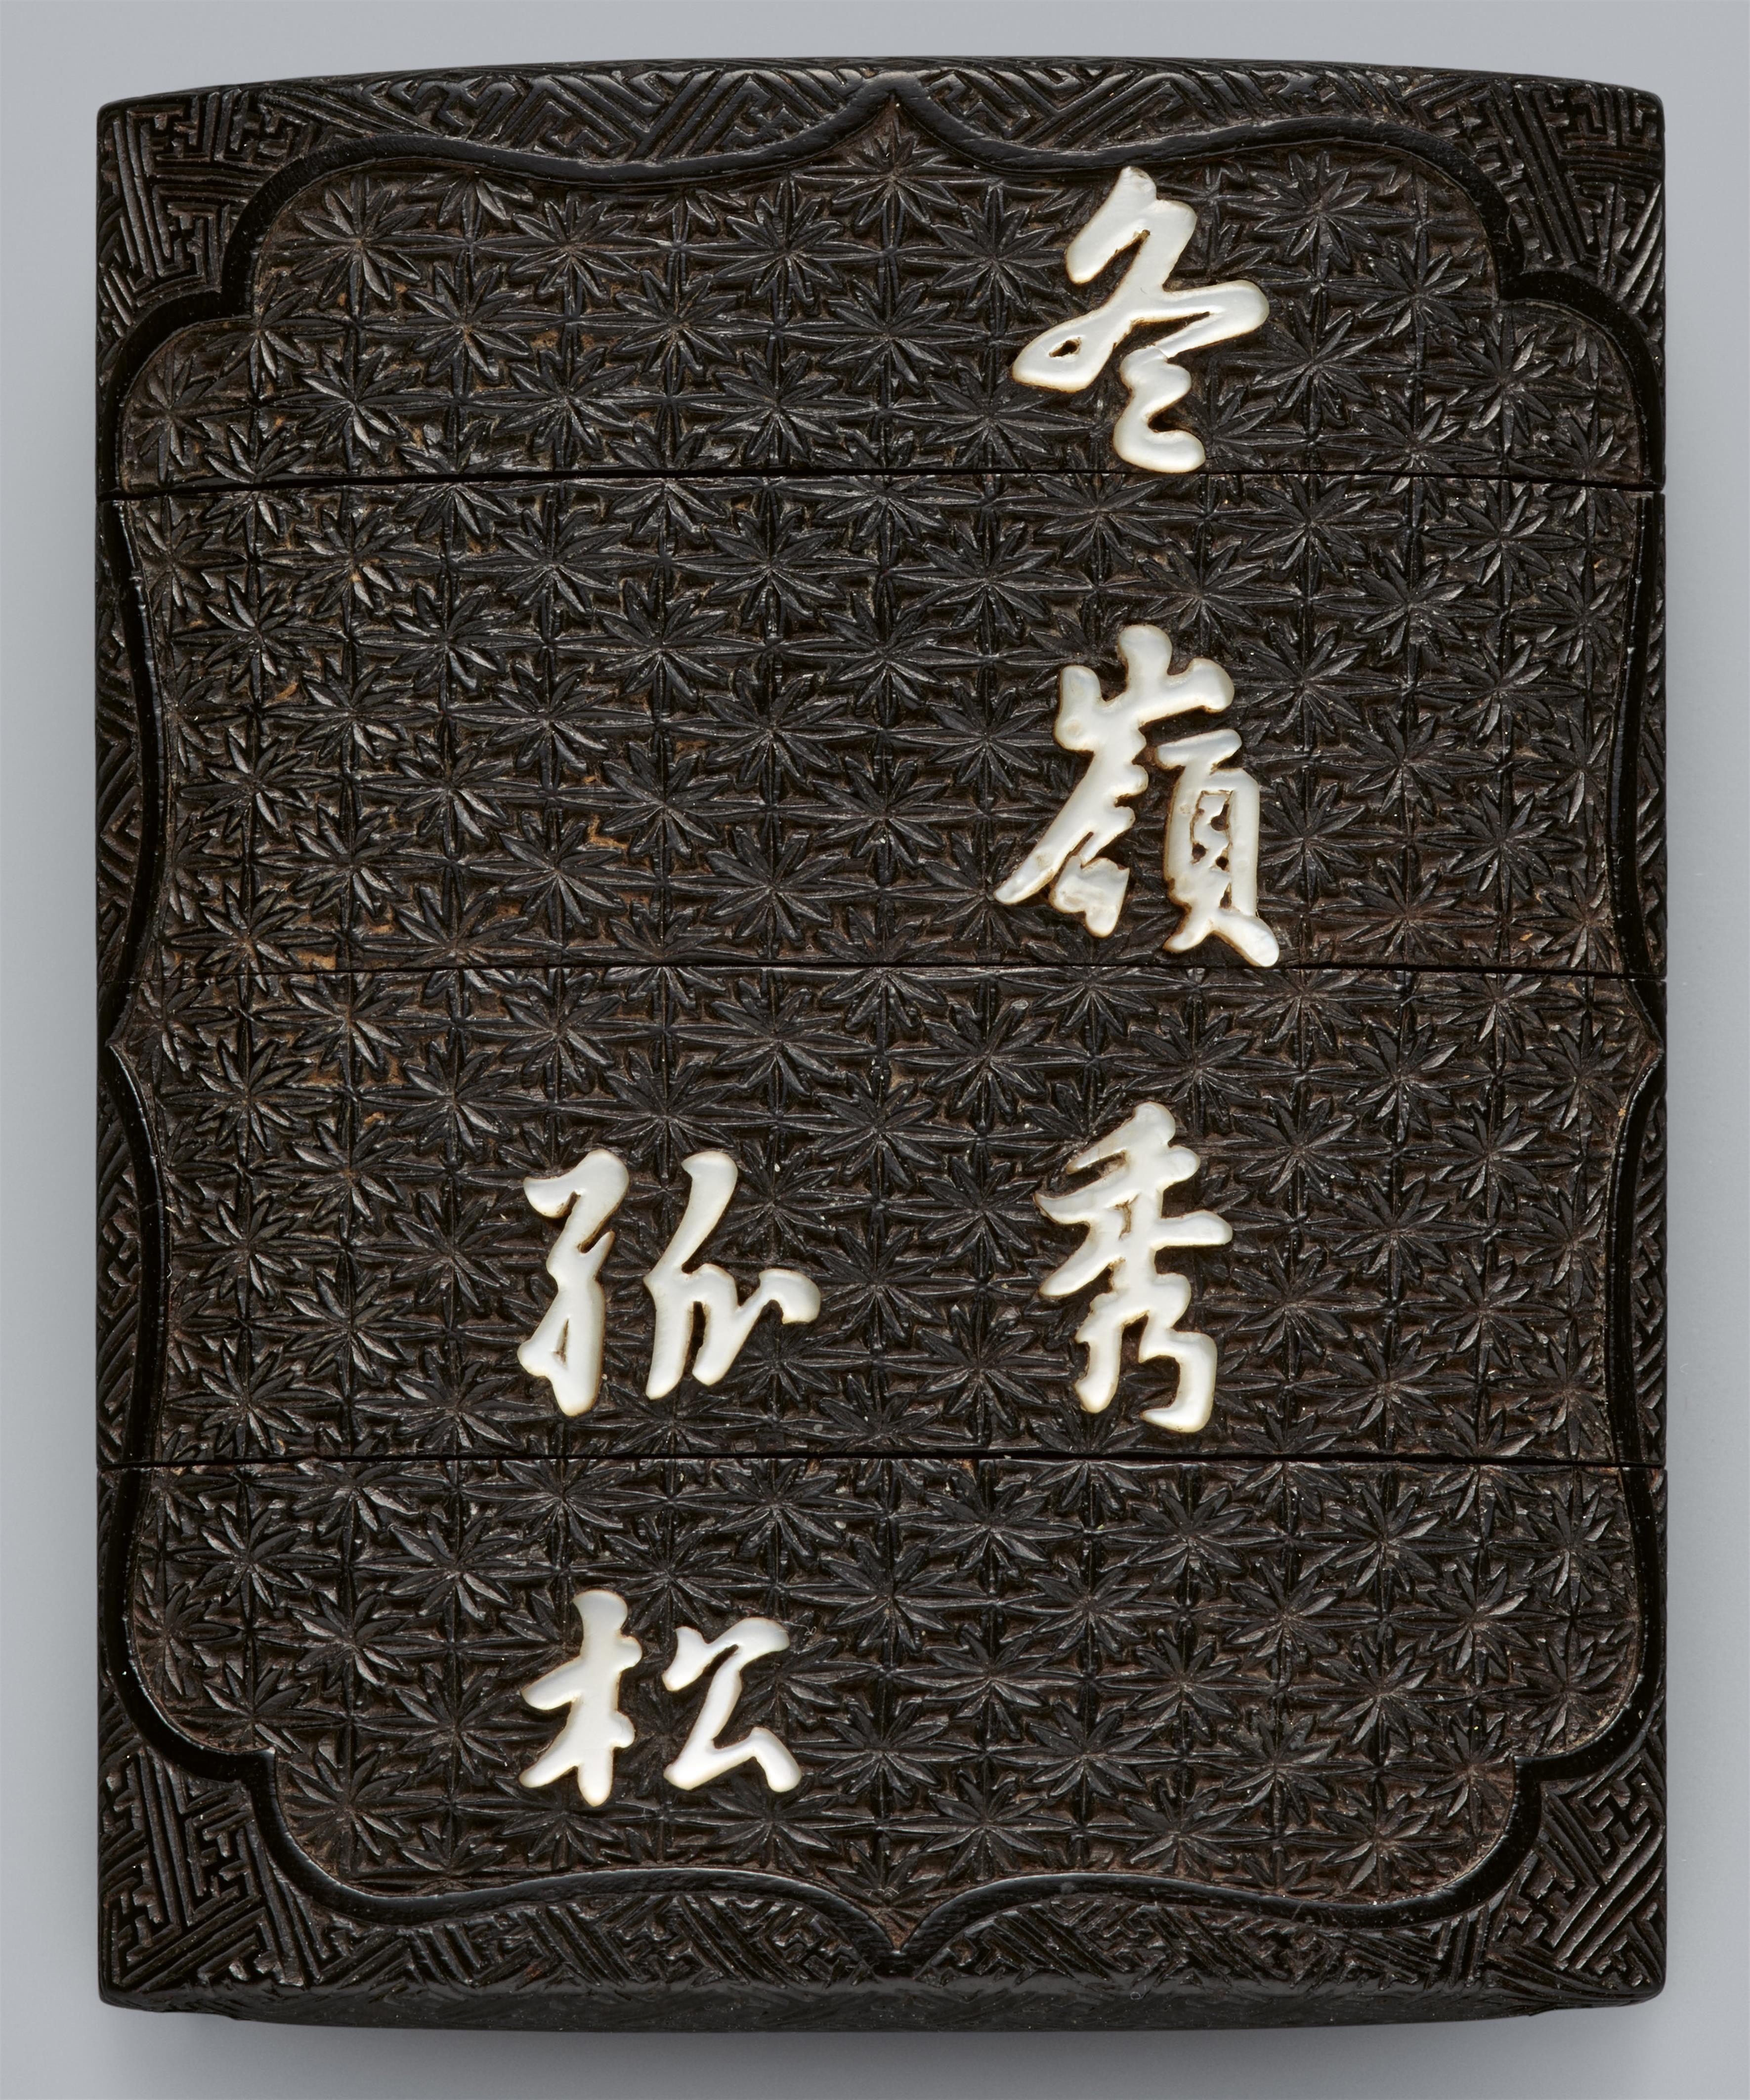 冬嶺秀
孤松